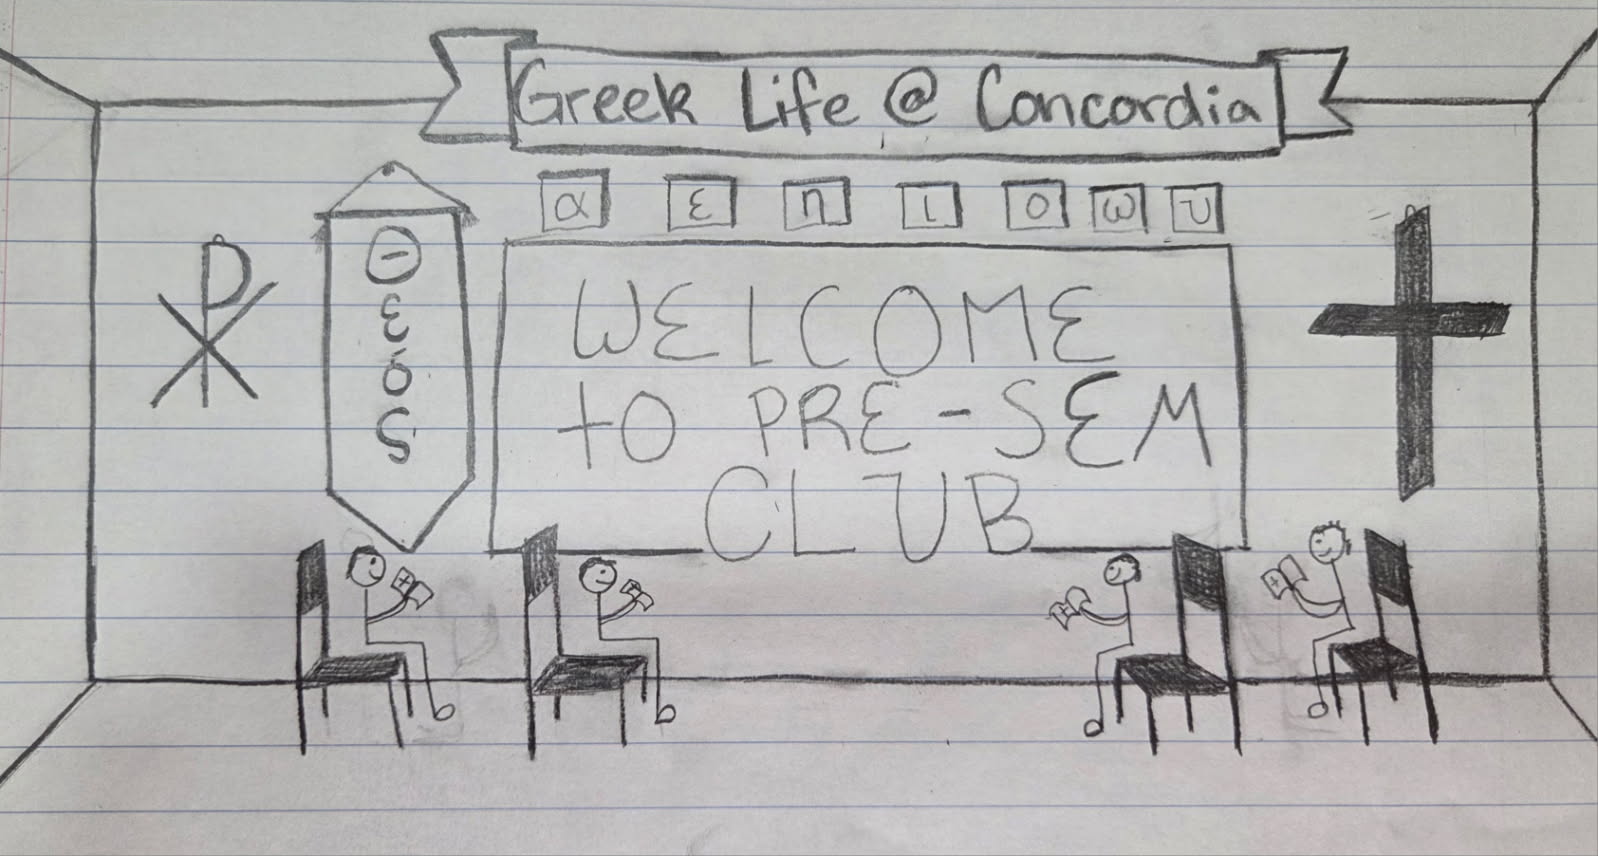 Greek Life @ Concordia
α ε η ι ο ω υ
Θεός
WELCOME
TO PRE-SEM
CLUB